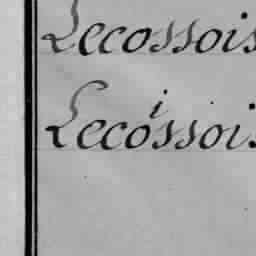 Lecossois
Lecoissois